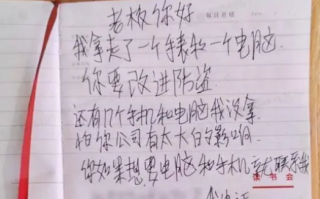 老板你好
我拿走了一个手表和一个电脑.
你要改进防盗
还有几个手机和电脑我没拿
怕你公司有太大的影响
你如果想要电脑和手机 联系我